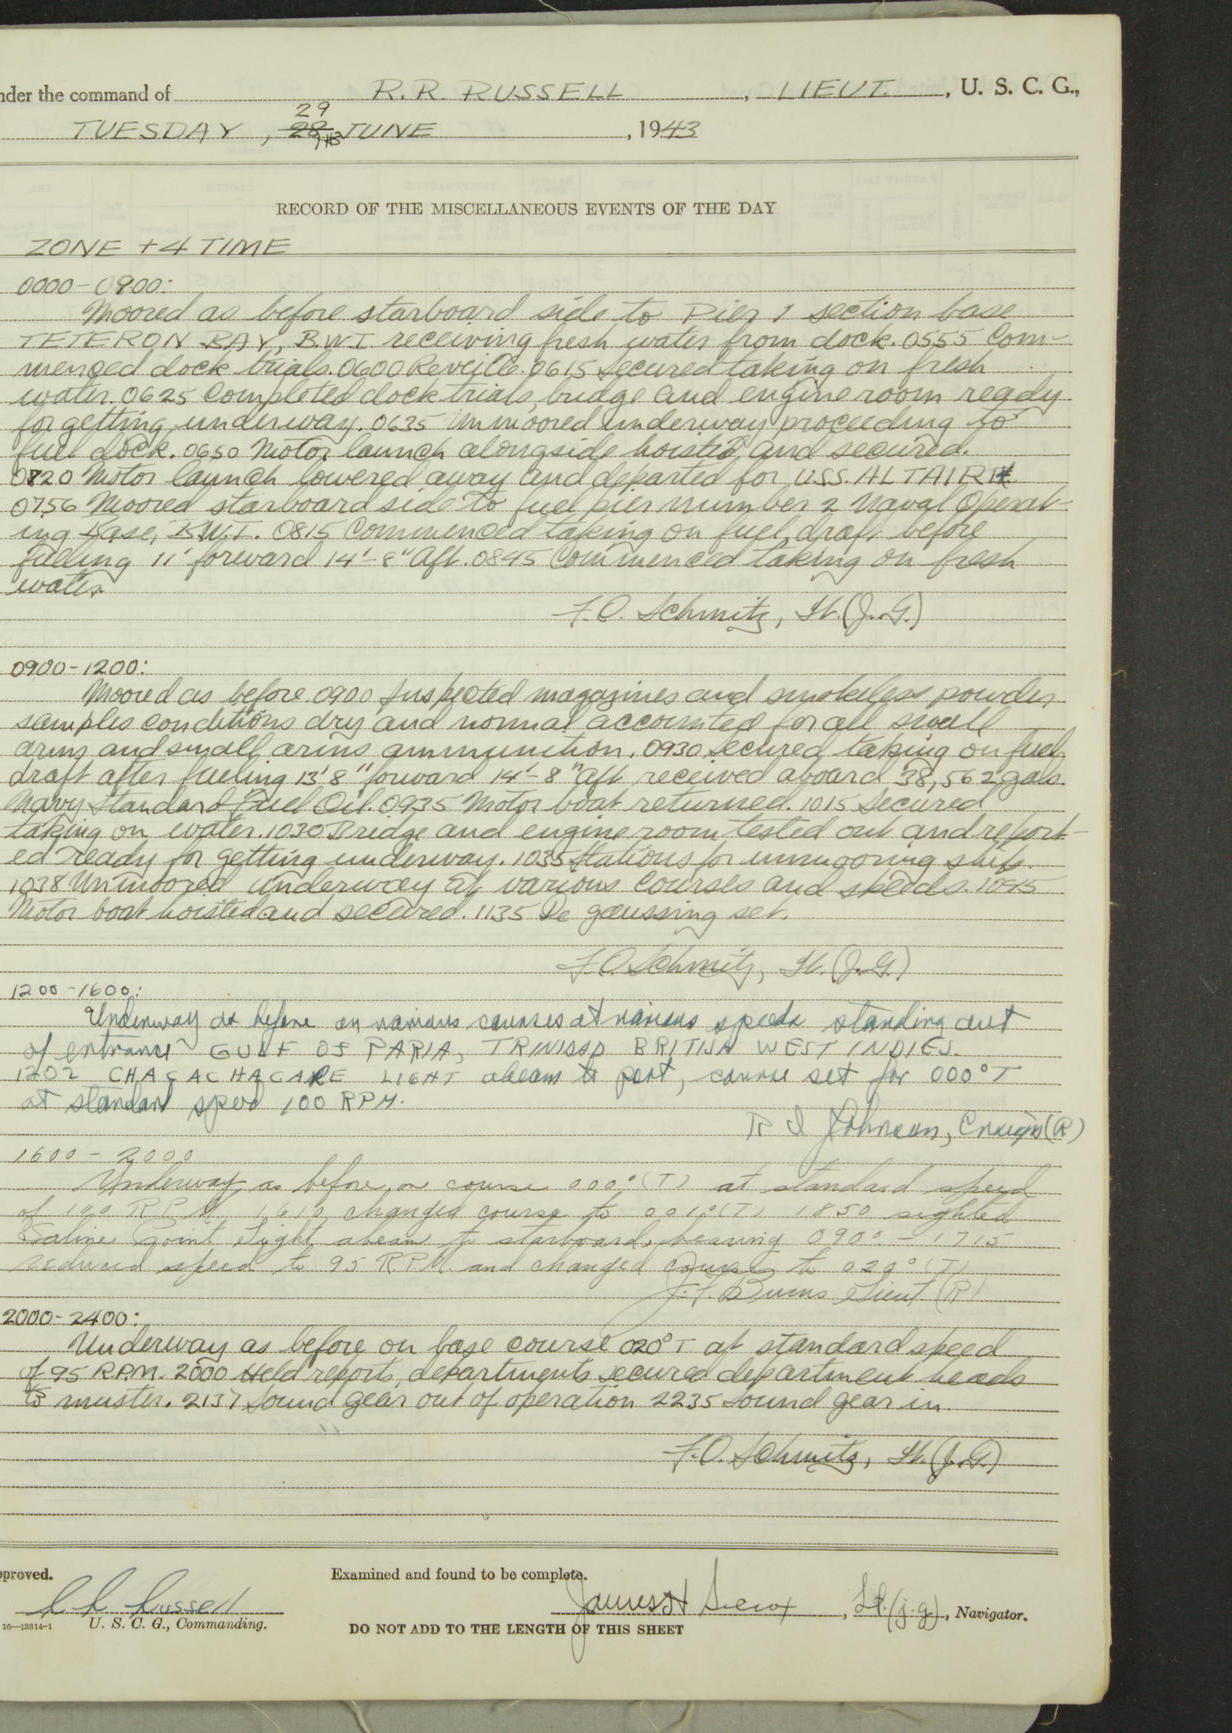 nder the command of R. R. RUSSELL, LIEUT., U. S. C. G.,
29
TUESDAY, 28 JUNE, 1943
RECORD OF THE MISCELLANEOUS EVENTS OF THE DAY
ZONE +4 TIME
0000-0900:
Moored as before starboard side to Pier 1 section base
TETERON BAY, B.W.I. receiving fresh water from dock. 0555 Com-
menced dock trials. 0600 Reveille. 0615 Secured taking on fresh
water. 0625 Completed dock trials, bridge and engine room ready
for getting underway. 0635 Unmoored underway proceeding to
fuel dock. 0650 Motor launch alongside hoisted and secured.
0720 Motor launch lowered away and departed for U.S.S. ALTAIR
0756 Moored starboard side to fuel pier number 2 Naval Operat-
ing Base, B.W.I. 0815 Commenced taking on fuel, draft before
fueling 11' forward 14'-8" Aft. 0845 Commenced taking on fresh
water
F. O. Schmitz, Lt. (J.G.)
0900-1200:
Moored as before. 0900 Inspected magazines and smokeless powder
samples conditions dry and normal accounted for all small
arms and small arms ammunition. 0930 Secured taking on fuel
draft after fueling 13'8" forward 14'-8" aft received aboard 38,562 gals.
Navy Standard Fuel Oil. 0935 Motor boat returned. 1015 Secured
taking on water. 1030 Bridge and engine room tested out and report-
ed ready for getting underway. 1035 Stations for unmooring ship.
1038 Unmoored underway at various courses and speeds. 1045
Motor boat hoisted and secured. 1135 De gaussing set.
F. O. Schmitz, Lt. (J.G.)
1200-1600:
Underway as before on various courses at various speeds standing out
of entrance GULF OF PARIA, TRINIDAD BRITISH WEST INDIES.
1202 CHACACHACARE LIGHT abeam to port, course set for 000°T
at standard speed 100 RPM.
R I Johnson, Ensign (R)
1600-2000
Underway as before on course 000° (T) at standard speed
of 100 RPM 1610 changed course to 001° (T) 1850 sighted
Saline Point Light abeam to starboard, bearing 090° - 1715
reduced speed to 95 RPM and changed course to 020° (T)
J. F. Burns Lieut (R)
2000-2400:
Underway as before on base course 020°T at standard speed
of 95 RPM. 2000 Held reports, departments secured department heads
to muster. 2137 Sound gear out of operation 2235 sound gear in.
F. O. Schmitz, Lt. (J.G.)
pproved.
Examined and found to be complete.
R R Russell
U. S. C. G., Commanding.
James H, Lt. (j.g.), Navigator.
16-13314-1
DO NOT ADD TO THE LENGTH OF THIS SHEET